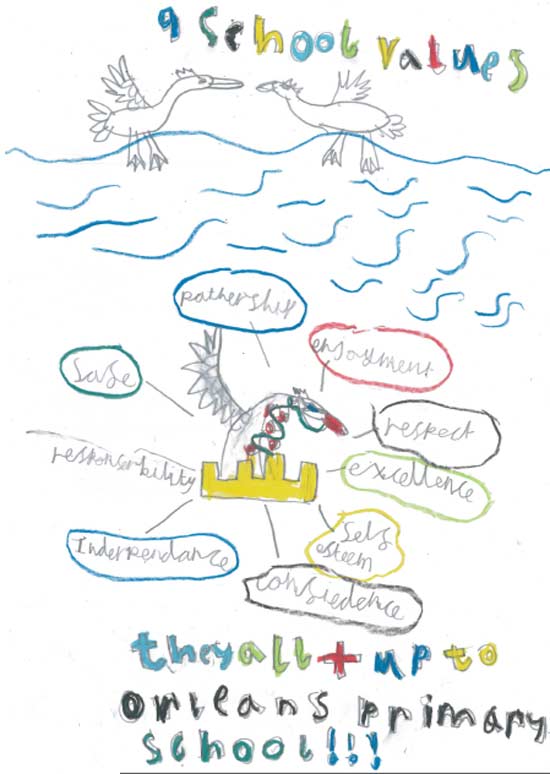 9 School values
pathership
enjoyment
Safe
respect
responserbility
excellence
Self
esteem
Independance
confiedence
they all + up to
Orleans primary
School!!!